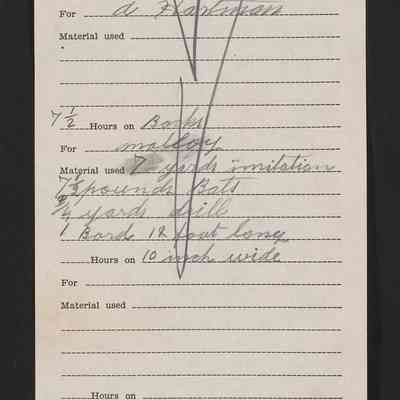 For a Hartman
Material used
7 1/2 Hours on Backs
For malloy
Material used 7 yards imitation
7 1/2 pounds Bats
2 1/4 yards drill
1 Bord 12 foot long
Hours on 10 inch wide
For
Material used
Hours on